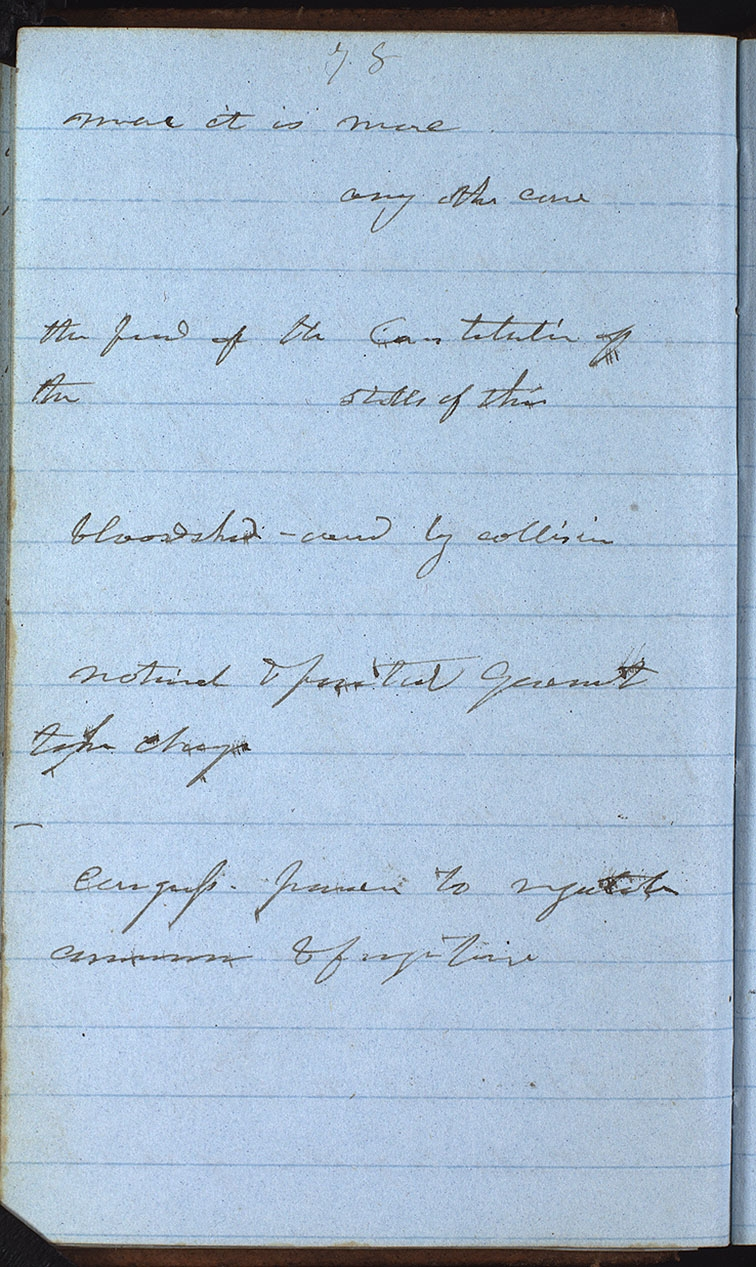 78
more it is more
any other case
the
of the Constitution of
the states of this
bloodshed - by collision
national & Government
take charge
Congress - power to regulate
commerce & fugitive